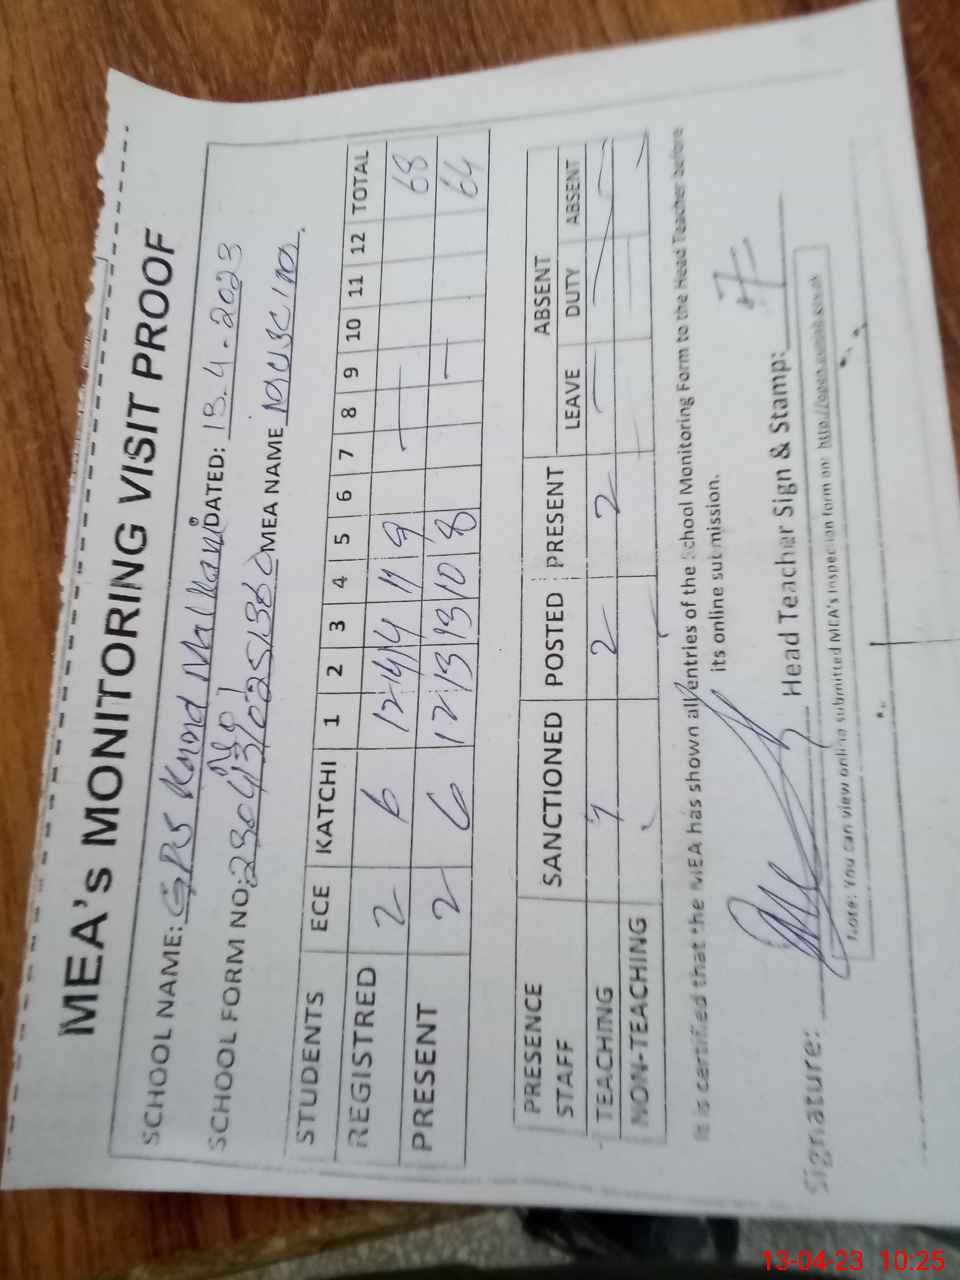 MEA's MONITORING VISIT PROOF
SCHOOL NAME: GPS Kound DATED: 13.4.2023
SCHOOL FORM NO: MEA NAME
STUDENTS ECE KATCHI 1 2 3 4 5 6 7 8 9 10 11 12 TOTAL
REGISTRED 2 6 12 14 14 11 9 68
PRESENT 2 6 12 13 13 10 8 64
PRESENCE STAFF SANCTIONED POSTED PRESENT ABSENT
LEAVE DUTY ABSENT
TEACHING 2 2
NON-TEACHING
It is certified that the MEA has shown all entries of the School Monitoring Form to the Head Teacher before
its online submission.
Signature: Head Teacher Sign & Stamp:
Note: You can view online submitted MEA's inspection form on:
13-04-23 10:25